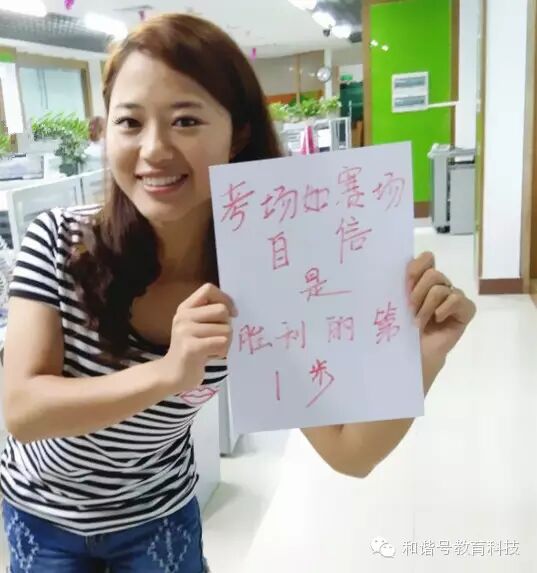 考场如赛场
自信
是
胜利的第
1步
和谐号教育科技